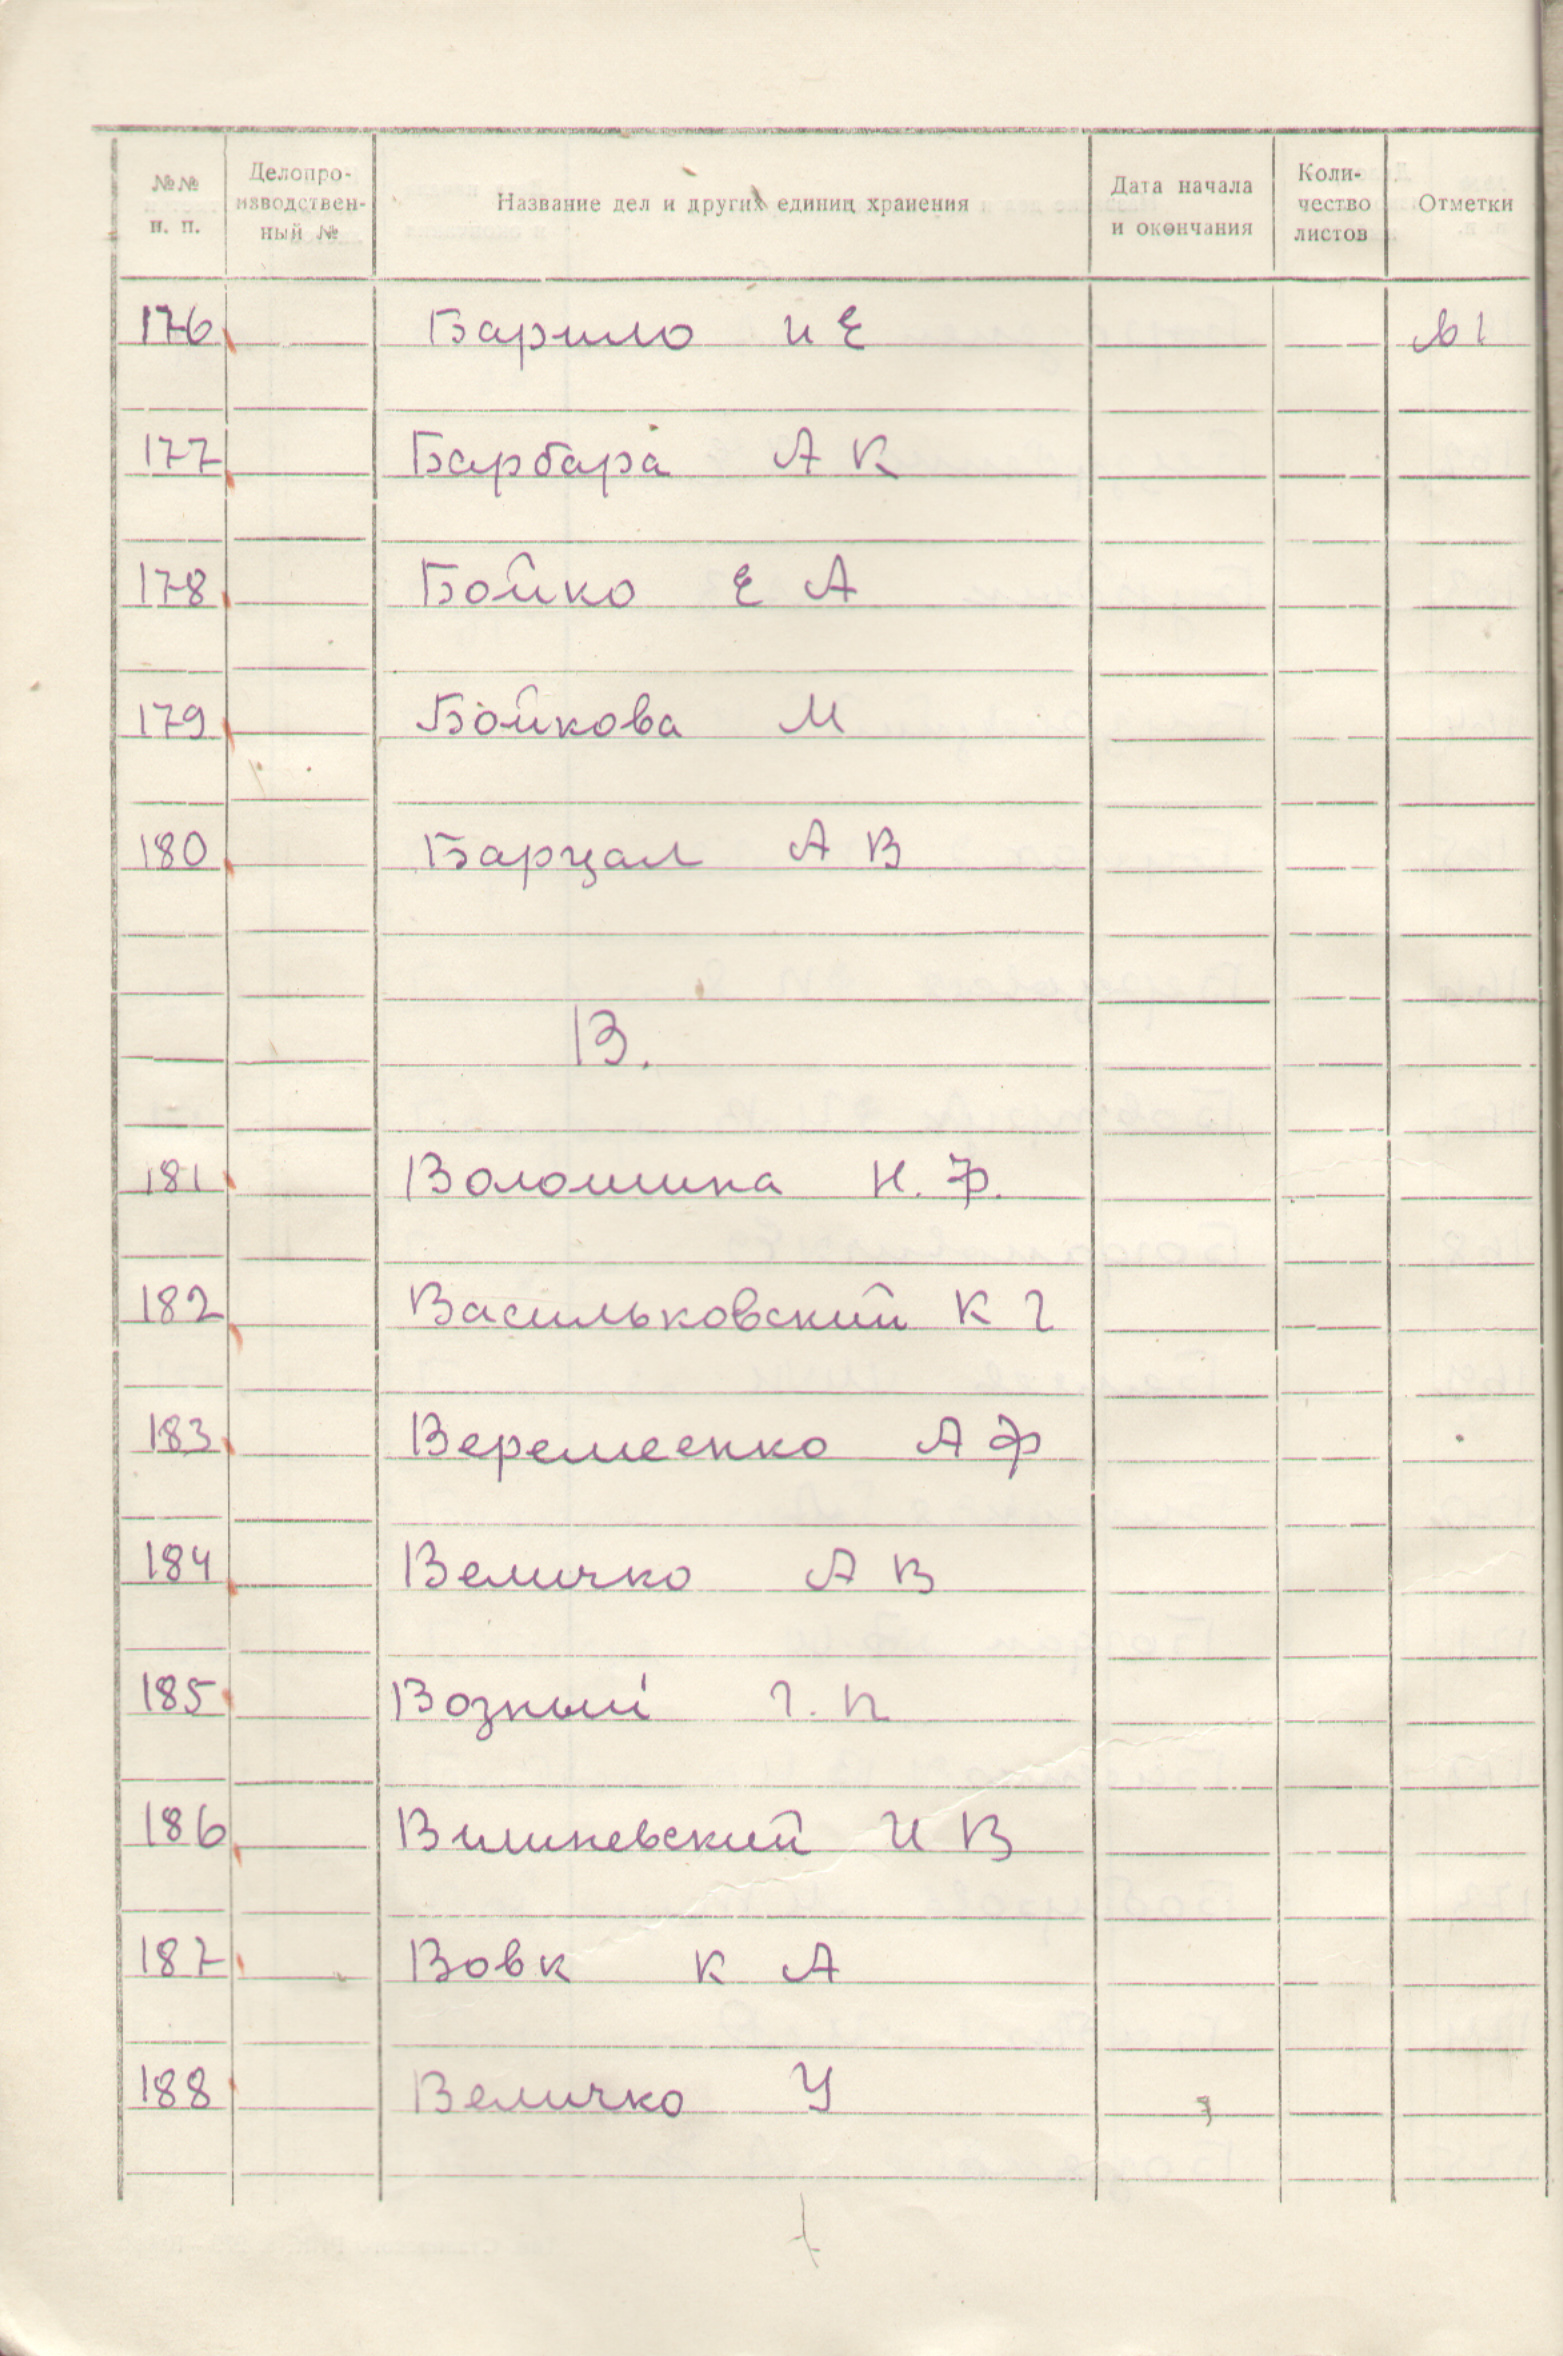 №№ п. п. Делопро-изводствен-ный № Название дел и других единиц хранения Дата начала и окончания Коли-чество листов Отметки
176 Барило И Е
177 Барбара А К
178 Бойко Е А
179 Бойкова М
180 Барцал А В
В.
181 Волошина Н. Ф.
182 Васильковский К Г
183 Веремеенко А Ф
184 Величко А В
185 Возный Г. П
186 Вилиневский И В
187 Вовк К А
188 Величко У